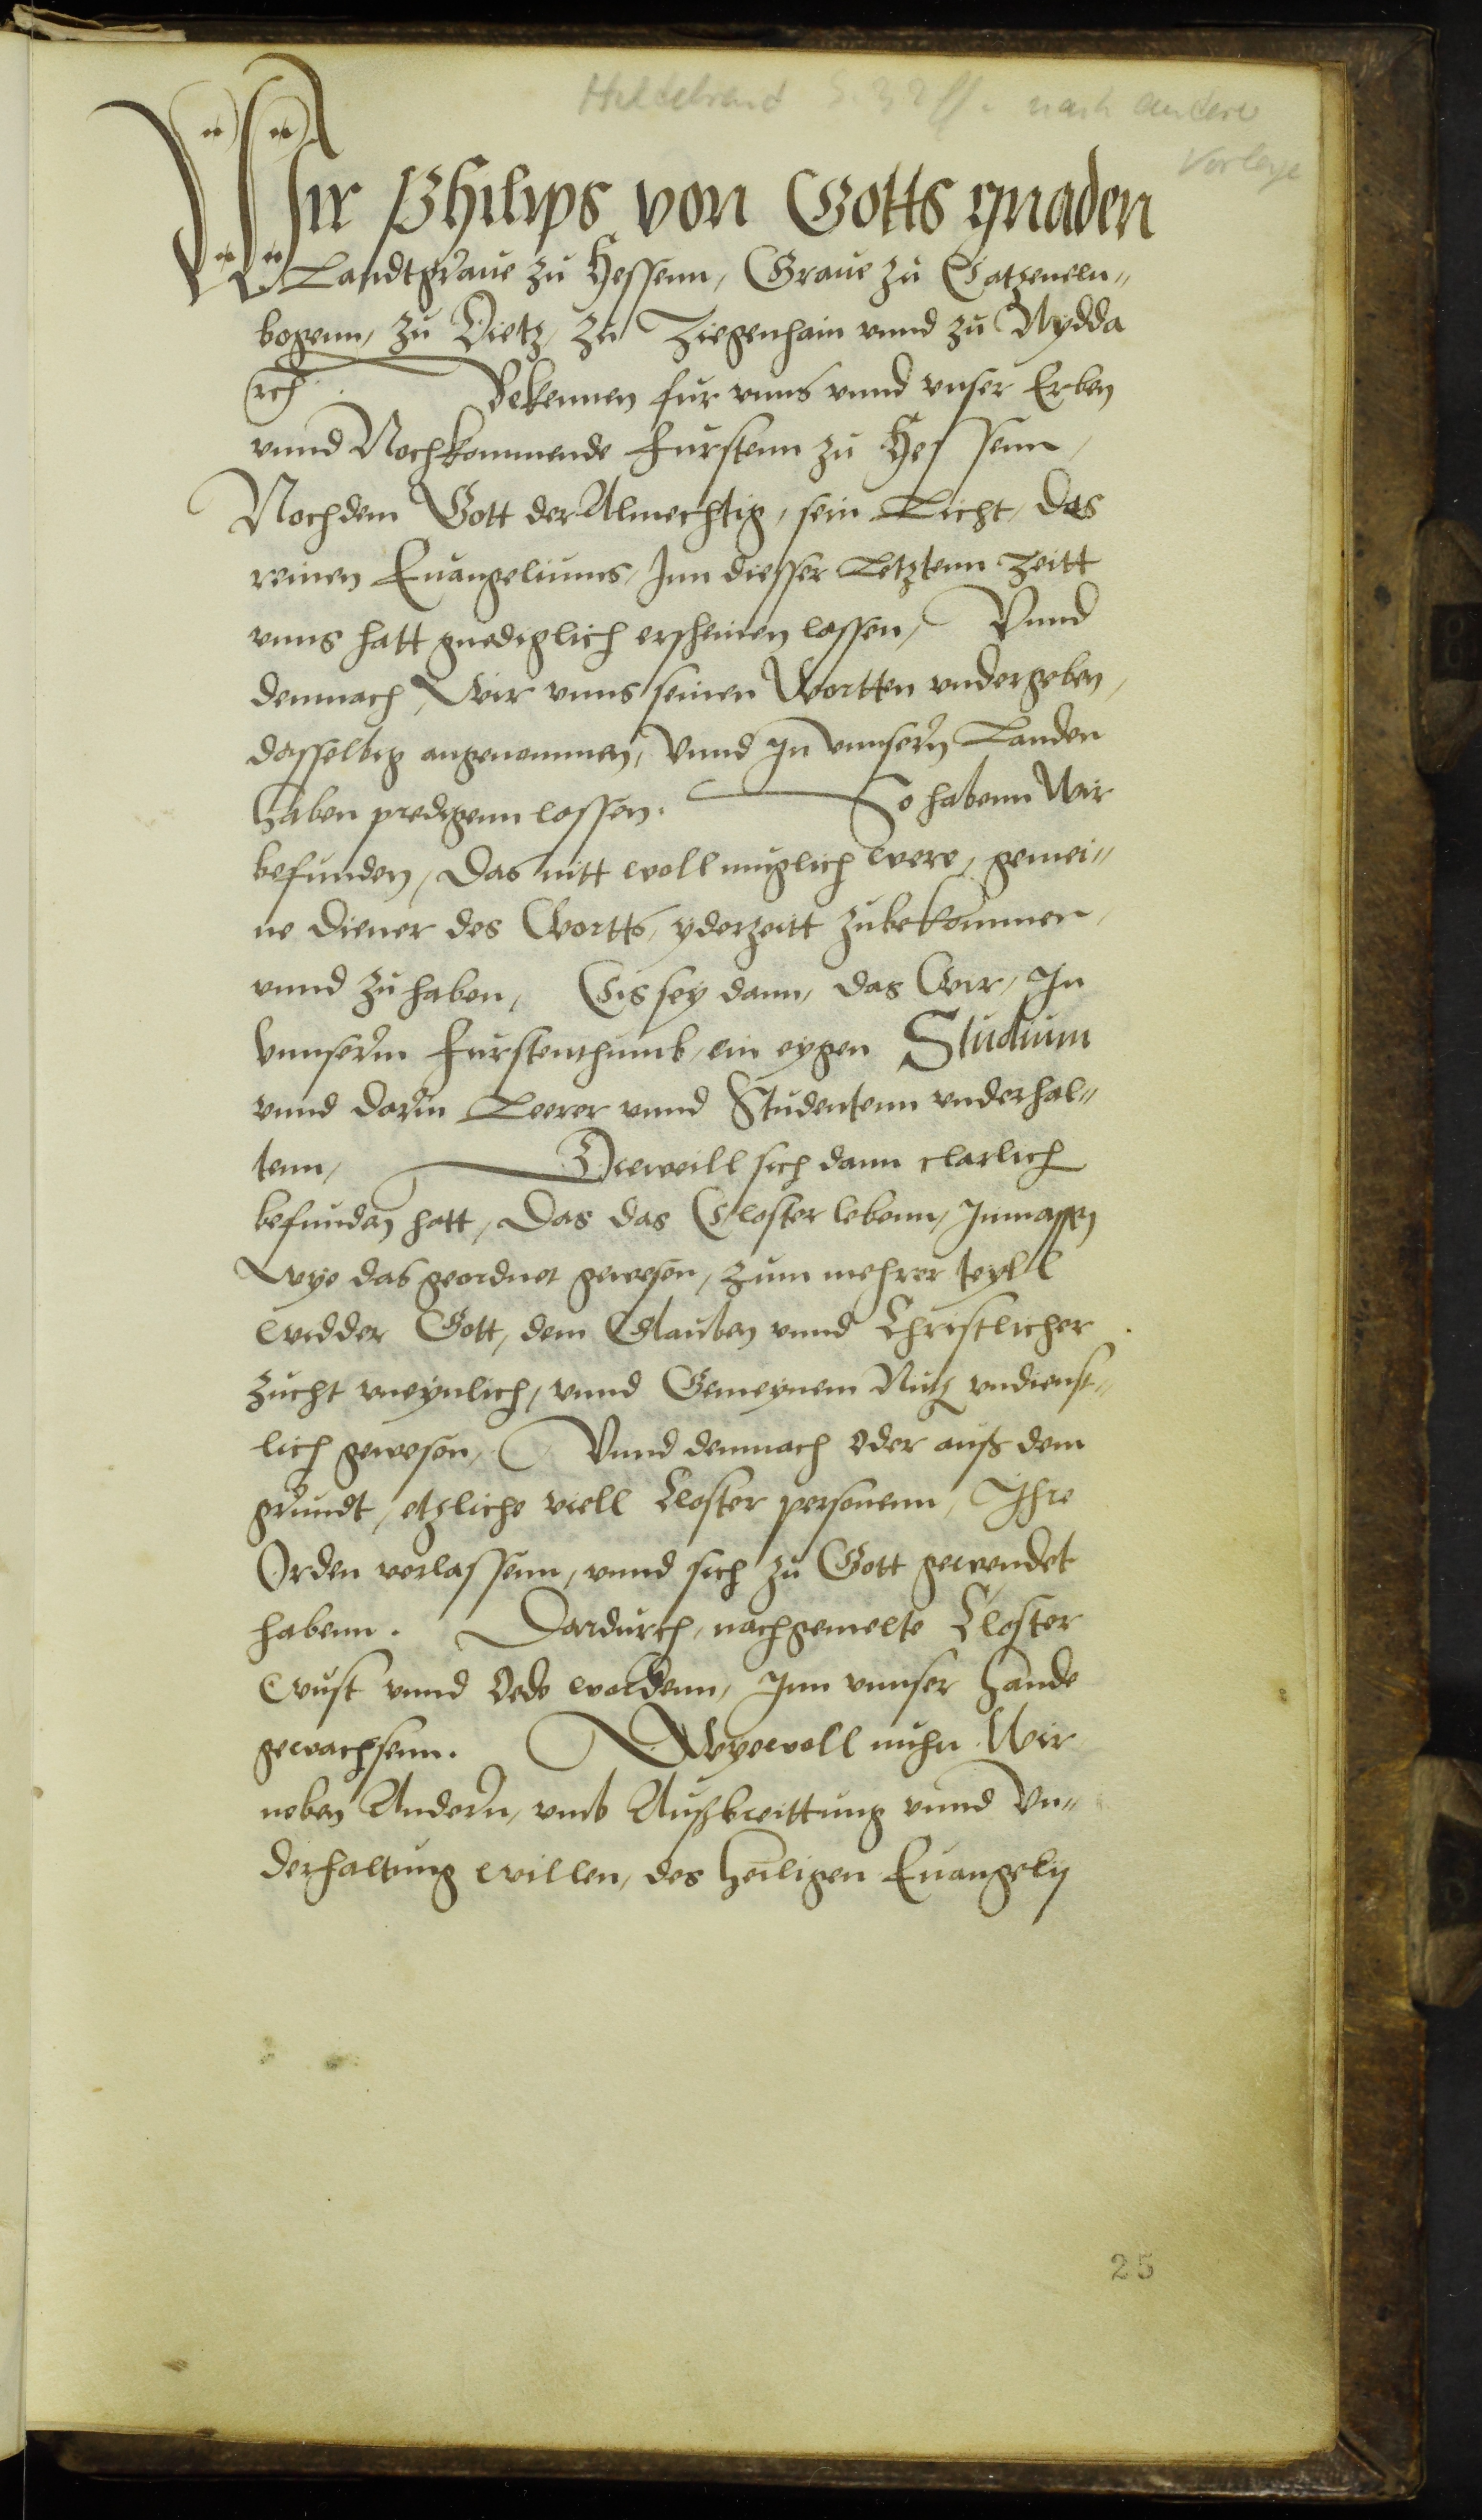 Hildebrand S. 32 ff. nach andere
Vorlage
Wir Philips von Gotts gnaden
Landtgraue zu Hessenn, Graue zu Catzeneln„
bogenn, zu Dietz, zu Ziegenhain vnnd zu Nydda
rc̃. Bekennen fur vnns vnnd vnser Erben
vnnd Nochkommende Furstenn zu Hessenn,
Nochdem Gott der Almechtig, sein Licht, das
reinen Euangeliums, Inn diesser Letztenn Zeitt
vnns hatt gnediglich erscheinen lassen, Vnnd
demnach, Wir vnns seinen Wortten vndergeben,
dasselbig angenommen, Vnnd In Vnnsern Landen
haben predigenn lassen. So habenn Wir
befunden, Das nitt woll muglich were, gemei„
ne Diener des Wortts, yderzeitt zubekommen,
vnnd zuhaben, Eis sey dann, das Wir, In
Vnnserm Furstenthumb, ein eygen Studium
vnnd darin Leerer vnnd Studentenn vnderhal„
tenn, Dieweill sich dann clarlich
befunden hatt, Das das Closter lebenn, Inmassen
Wye das geordnet gewesen, zum mehrer teyll
widder Gott, dem Glauben vnnd Christlicher
zucht vneynlich, vnnd Gemeynem Nutz vndienst„
lich gewesen, Vnnd demnach oder auß dem
grundt, etzliche viell Closter personenn, Ihre
Orden verlassenn, vnnd sich zu Gott gewendet
habenn. Dardurch, nachgemelte Closter
Wust vnnd Oede wordenn, Inn vnnser Hande
gewachsenn. Wyewoll nuhn Wir
neben Andern, vmb Außbreittung vnnd Vn„
derhaltung willen, des heiligen Euangelij
25